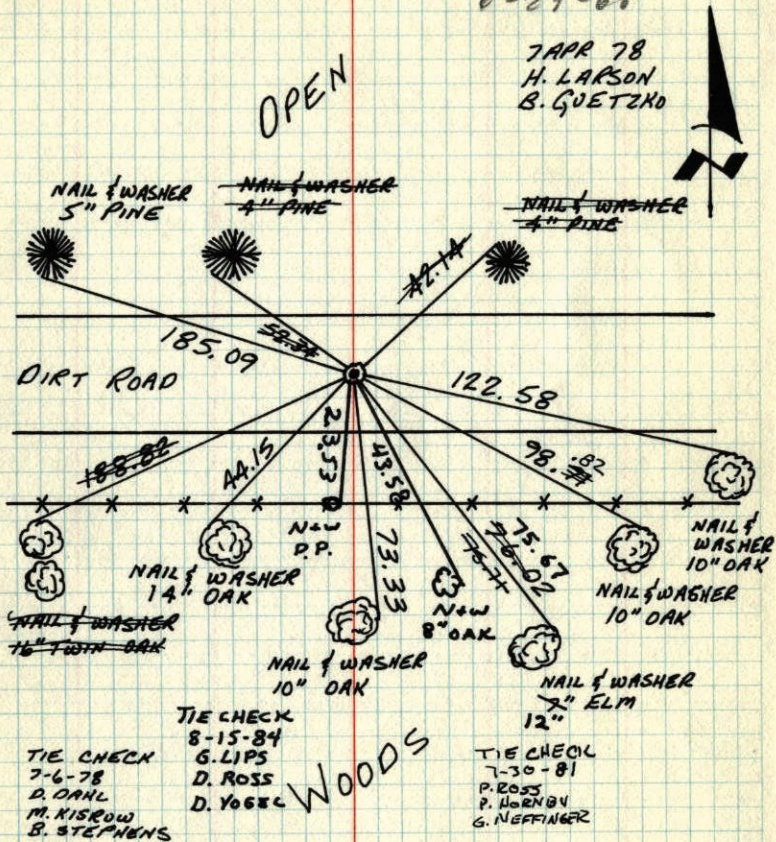 7 APR 78
H. LARSON
B. GUETZKO
OPEN
NAIL & WASHER
5" PINE
NAIL & WASHER
4" PINE
NAIL & WASHER
4" PINE
N
42.14
52.34
185.09
DIRT ROAD
122.58
188.82
44.15
23.53
43.58
98.71 .82
73.33
75.71
76.02
75.67
N+W
P.P.
NAIL & WASHER
14" OAK
NAIL & WASHER
16" TWIN OAK
NAIL & WASHER
10" OAK
N+W
8" OAK
NAIL & WASHER
10" OAK
NAIL &
WASHER
10" OAK
NAIL & WASHER
7" ELM
12"
WOODS
TIE CHECK
7-6-78
D. DAHL
M. KISROW
B. STEPHENS
TIE CHECK
8-15-84
G. LIPS
D. ROSS
D. VOGEL
TIE CHECK
7-30-81
P. ROSS
P. HORNBY
G. NEFFINGER